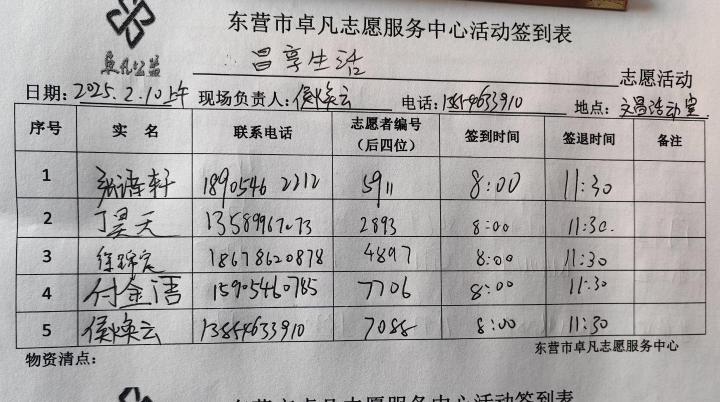 东营市卓凡志愿服务中心活动签到表
卓凡公益
昌享生活 志愿活动
日期：2025.2.10上午 现场负责人：侯焕云 电话：13854633910 地点：文昌活动室
序号 实 名 联系电话 志愿者编号（后四位） 签到时间 签退时间 备注
1 张语轩 18905462212 5911 8:00 11:30
2 丁昊天 13589967073 2893 8:00 11:30
3 徐 18678620878 4897 8:00 11:30
4 付金语 15905460785 7706 8:00 11:30
5 侯焕云 13854633910 7088 8:00 11:30
物资清点： 东营市卓凡志愿服务中心
东营市卓凡志愿服务中心活动签到表